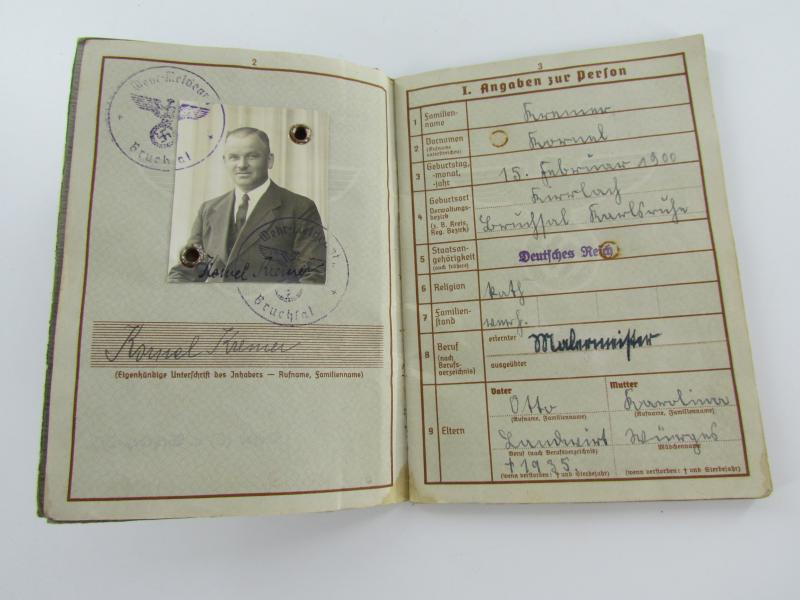 2
Wehr-Meldeamt
Bruchsal
Kornel Kremer
Wehr-Meldeamt
Bruchsal
Kornel Kremer
(Eigenhändige Unterschrift des Inhabers — Rufname, Familienname)
3
I. Angaben zur Person
1 Familien-
name
Kremer
2 Vornamen
(Rufname
unterstreichen)
Kornel
3 Geburtstag,
-monat,
-jahr
15. Februar 1900
4 Geburtsort
Verwaltungs-
bezirk
(z. B. Kreis,
Reg. Bezirk)
Kirrlach
Bruchsal Karlsruhe
5 Staatsan-
gehörigkeit
(auch frühere)
Deutsches Reich
6 Religion
kath
7 Familien-
stand
verh.
8 Beruf
(nach
Berufs-
verzeichnis)
erlernter
Malermeister
ausgeübter
9 Eltern
Vater
Otto
(Rufname, Familienname)
Landwirt
Beruf (nach Berufsverzeichnis)
† 1935.
(wenn verstorben: † und Sterbejahr)
Mutter
Karolina
(Rufname, Familienname)
Würges
Mädchenname
(wenn verstorben: † und Sterbejahr)